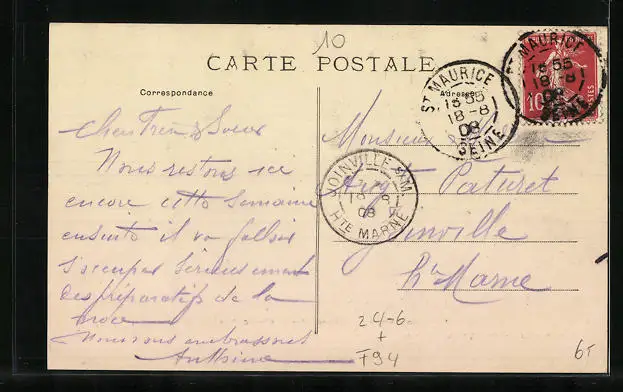 10
CARTE POSTALE
Correspondance
Adresse
Cher Frère & Soeur
Nous restons ici
encore cette semaine
ensuite il va falloir
s'occuper sérieusement
des préparatifs de la
noce
Nous vous embrassons
Monsieur
Aug Paturet
Joinville
Hte Marne
ST MAURICE
18 55
18 -8
08
SEINE
ST MAURICE
18 55
18 -8
08
SEINE
10
POSTES
JOINVILLE S/M
18 8
08
HTE MARNE
24-6
+
F94